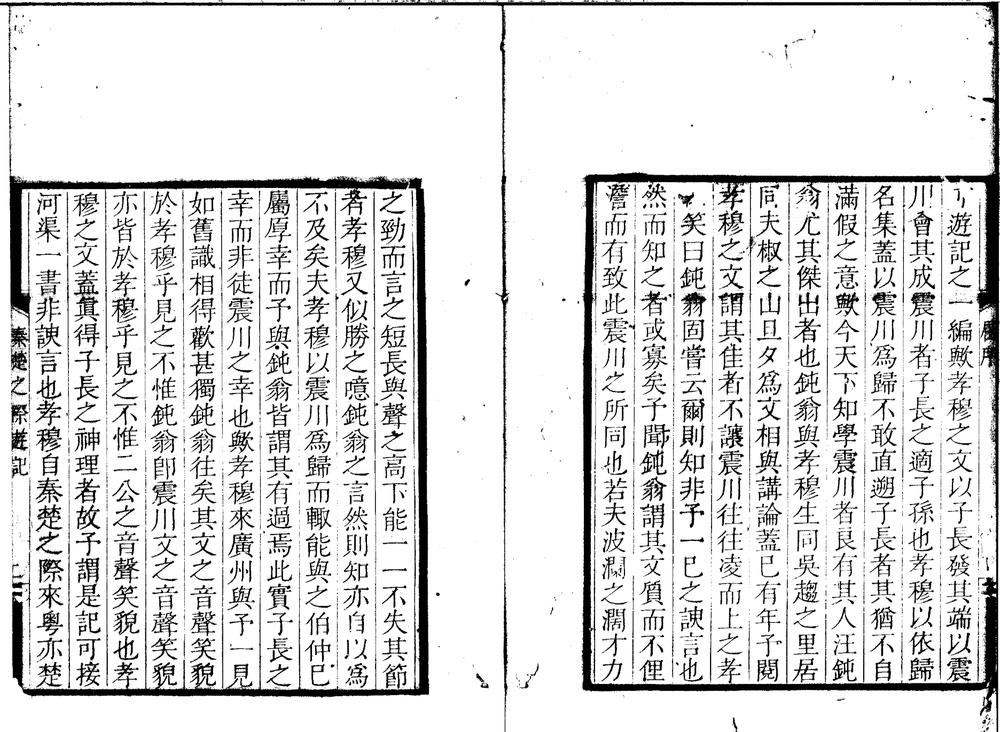 下遊記之一編歟孝穆之文以子長發其端以震
川會其成震川者子長之適子孫也孝穆以依歸
名集蓋以震川爲歸不敢直遡子長者其猶不自
滿假之意歟今天下知學震川者良有其人汪鈍
翁尤其傑出者也鈍翁與孝穆生同吳趨之里居
同夫椒之山旦夕爲文相與講論蓋已有年予閱
孝穆之文謂其佳者不讓震川往往凌而上之孝
笑曰鈍翁固嘗云爾則知非予一巳之諛言也
然而知之者或寡矣予聞鈍翁謂其文質而不俚
澹而有致此震川之所同也若夫波瀾之濶才力
之勁而言之短長與聲之高下能一一不失其節
者孝穆又似勝之噫鈍翁之言然則知亦自以爲
不及矣夫孝穆以震川爲歸而輙能與之伯仲巳
屬厚幸而予與鈍翁皆謂其有過焉此實子長之
幸而非徒震川之幸也歟孝穆來廣州與予一見
如舊識相得歡甚獨鈍翁往矣其文之音聲笑貌
於孝穆乎見之不惟鈍翁卽震川文之音聲笑貌
亦皆於孝穆乎見之不惟二公之音聲笑貌也孝
穆之文蓋眞得子長之神理者故予謂是記可接
河渠一書非諛言也孝穆自秦楚之際來粵亦楚
秦楚之際遊記